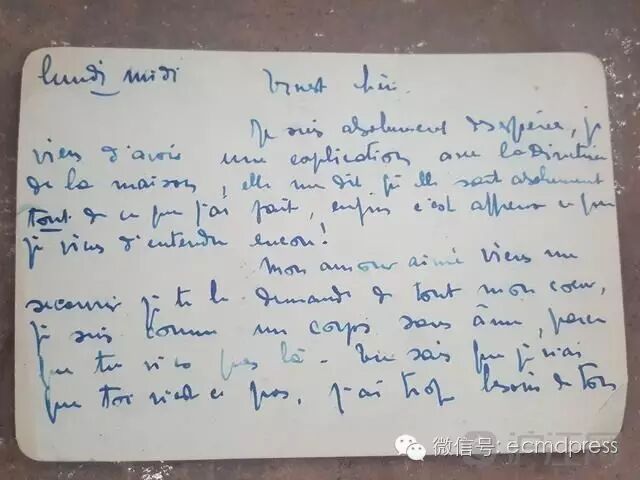 lundi midi Ernest chéri.
Je suis absolument désespérée, je
viens d'avoir une explication avec la Directrice
de la maison, elle me dit qu'elle sait absolument
tout de ce que j'ai fait, enfin c'est affreux ce que
je viens d'entendre encore!
Mon amour aimé viens me
secourir je te le demande de tout mon coeur,
je suis comme un corps sans âme, parce
que tu n'es pas là - tu sais que je n'ai
que toi n'est ce pas, j'ai trop besoin de ton
微信号: ecmdpress